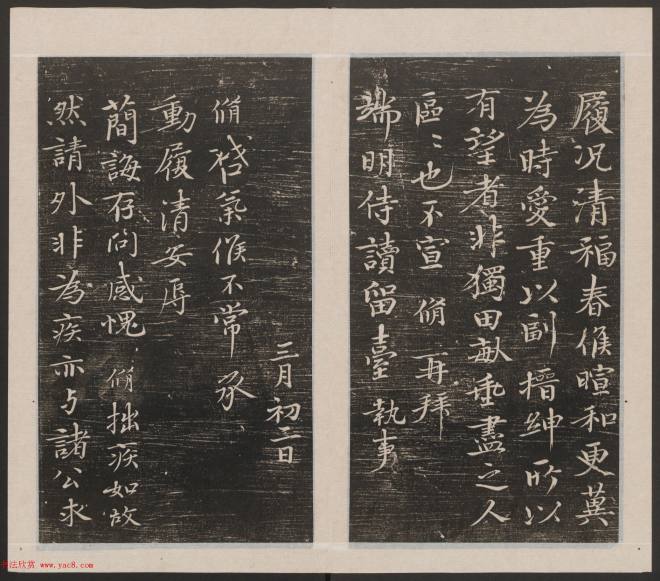 履況清福春候暄和更冀
為時愛重以副搢紳所以
有望者非獨田畝垂盡之人
區〻也不宣 脩 再拜
端明侍讀留臺執事
三月初二日
脩啓氣候不常承
動履清安辱
簡誨存問感愧 脩拙疾如故
然請外非為疾亦与諸公求
书法欣赏 www.yac8.com